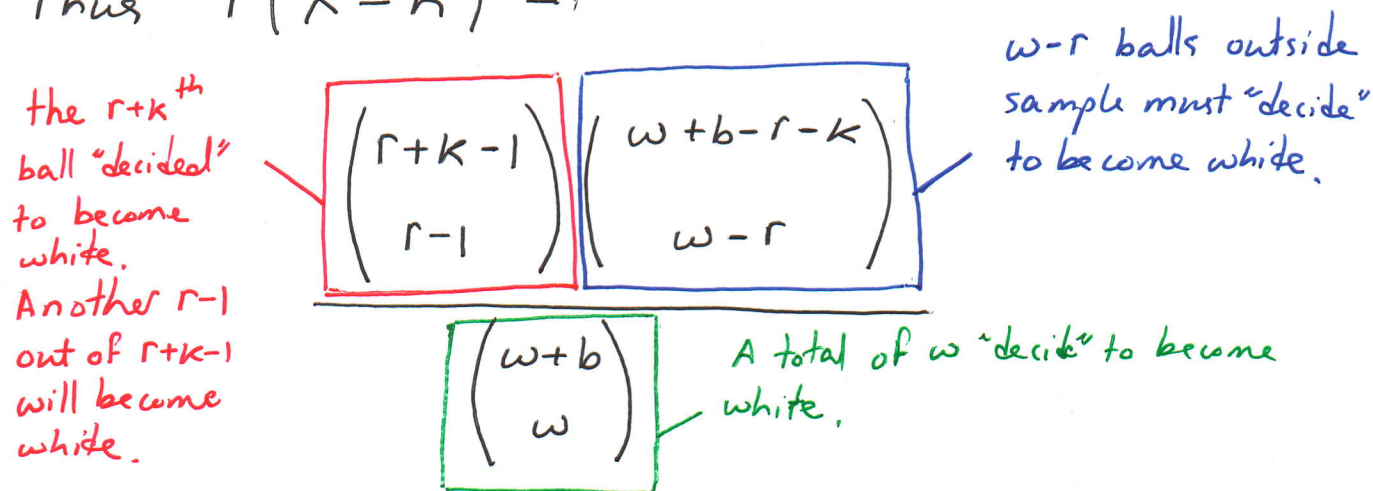 Thus P(X=k) =
the r+k^th
ball "decided"
to become
white.
Another r-1
out of r+k-1
will become
white.
(r+k-1
r-1)
(w+b-r-k
w-r)
w-r balls outside
sample must "decide"
to become white.
(w+b
w)
A total of w "decide" to become
white.